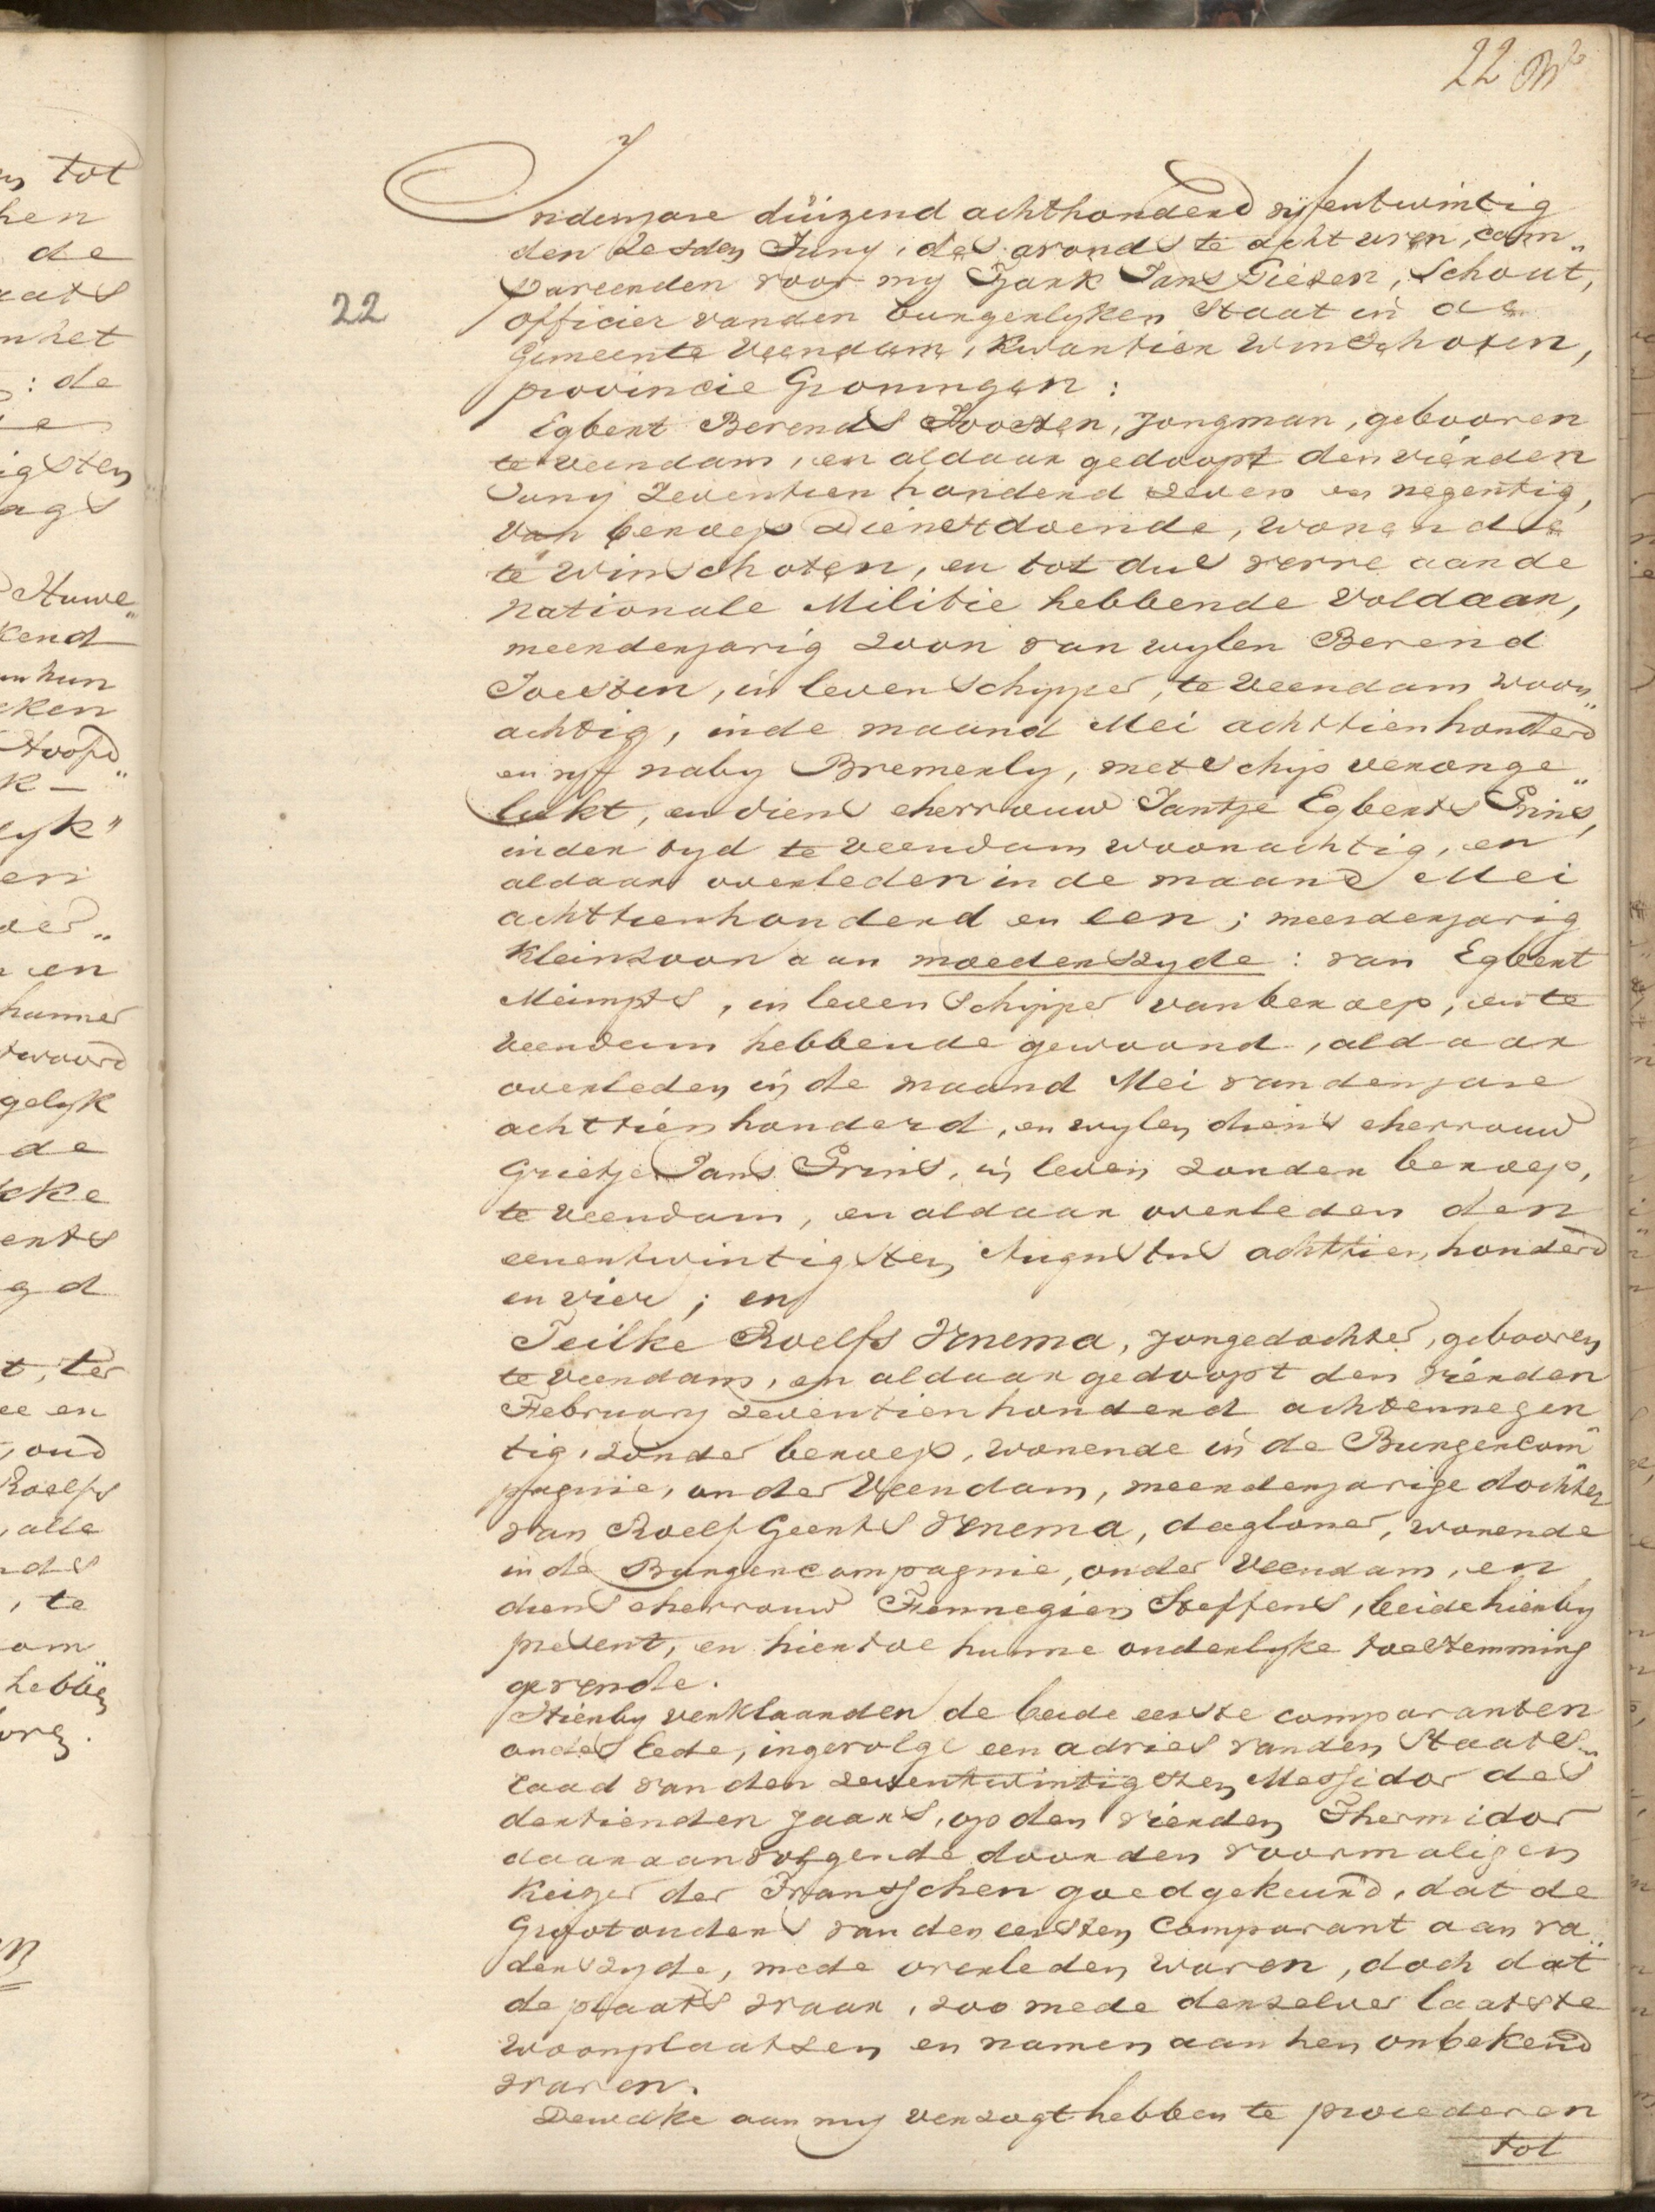 22
22
In den jare duizend achthonderd vyfentwintig
den zesden Juny, des avonds te acht uren, com„
pareerden voor my Jans Giezen, Schout,
officier van den burgerlyken Staat in de
Gemeente Veendam, kwartier Winschoten,
provincie Groningen:
Egbert Berends Joosten, jongman, gebooren
te Veendam, en aldaar gedoopt den vierden
Juny zeventien honderd zeven en negentig,
van beroep dienstdoende, wonende
te Winschoten, en tot dus verre aan de
nationale Militie hebbende voldaan,
meerderjarig zoon van wylen Berend
Joesten, in leven Schipper, te Veendam woon„
achtig, in de maand Mei achttien honderd
en vyf naby Bremerly, met schip veronge„
lukt, en diens ehevrouw Jantje Egberts Prins,
in der tyd te Veendam woonachtig, en
aldaar overleden in de maand Mei
achttienhonderd en een; meerderjarig
kleinzoon aan moederszyde: van Egbert
Meimpts, in leven Schipper van beroep, en te
Veendam hebbende gewoond, aldaar
overleden in de maand Mei van den jare
achttien honderd, en wylen diens ehevrouw
Grietje Jans Prins, in leven zonder beroep,
te Veendam, en aldaar overleden den
eenentwintigsten Augustus achttien honderd
en vier; en
Teilke Roelfs Venema, jongedochter, gebooren
te Veendam, en aldaar gedoopt den vierden
February zeventien honderd achtennegen
tig, zonder beroep, wonende in de Burgercom„
pagnie, onder Veendam, meerderjarige dochter
van Roelf Geerts Venema, dagloner, wonende
in de Burgercompagnie, onder Veendam, en
diens ehevrouw Fennegien Steffens, beide hierby
present, en hiertoe hunne ouderlyke toestemming
gevende.
Hierby verklaarden de beide eerste comparanten
onder ede, ingevolge een advies van den Staats„
raad van den zevenentwintigsten Messidor des
dertienden jaars, op den vierden Thermidor
daaraanvolgende door den voormaligen
Keizer der Franschen goedgekeurd, dat de
Grootouders van den eersten Comparant aan va„
derszyde, mede overleden waren, doch dat
de plaats waar, zoo mede derzelver laatste
woonplaatsen en namen aan hen onbekend
waren.
Dewelke aan my verzogt hebben te procederen
tot